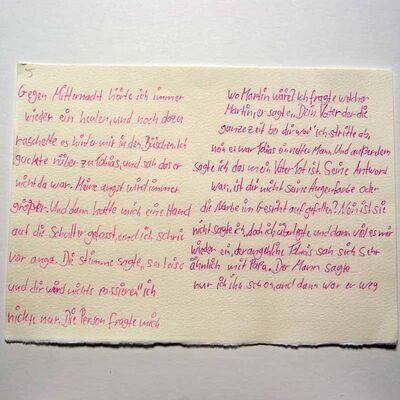 5
Gegen Mitternacht hörte ich immer
wieder ein heulen, und noch dazu
raschelte es hinter mit in den Büschen. Ich
guckte rüber zu Tobias, und sah das er
nicht da war. Meine angst wird immer
größer. Und dann hatte mich eine Hand
auf die Schulter gefasst, und ich schrie
vor angst. Die stimme sagte, sei leise
und dir wird nichts passieren" ich
nickte nur. Die Person fragte mich
wo Martin wäre? Ich fragte welcher
Martin, er sagte, Dein Vater der die
ganze zeit bei dir war" ich stritte ab,
nein er war Tobias ein netter Mann. Und außerdem
sagte ich das mein Vater Tot ist. Seine Antwort
war, ist dir nicht Seine Augenfarbe oder
die Narbe im Gesicht aufgefallen? Nein ist sie
nicht sagte ich, doch ich überlegte, und dann viel es mir
wieder ein, der angebliche Tobias sah sich Sehr
ähnlich mit Papa. Der Mann sagte
nur ich ihr schon, and dann war er weg